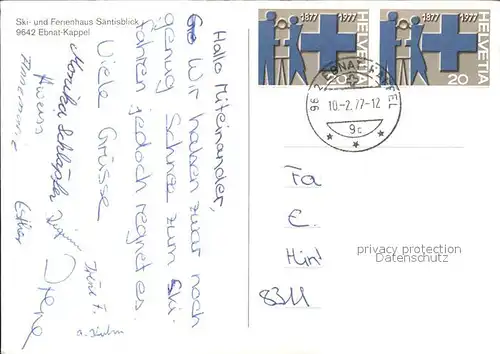 Ski- und Ferienhaus Säntisblick
9642 Ebnat-Kappel
Hallo Miteinander,
Wir haben zwar noch
genug Schnee zum Ski-
fahren jedoch regnet es.
Viele Grüsse
Monika
Irene
Esther
1877 1977
HELVETIA
20
1877 1977
HELVETIA
20
9642 EBNAT-KAPPEL
10.-2.77-12
9c
Fa
E.
Hin
8311
privacy protection
Datenschutz